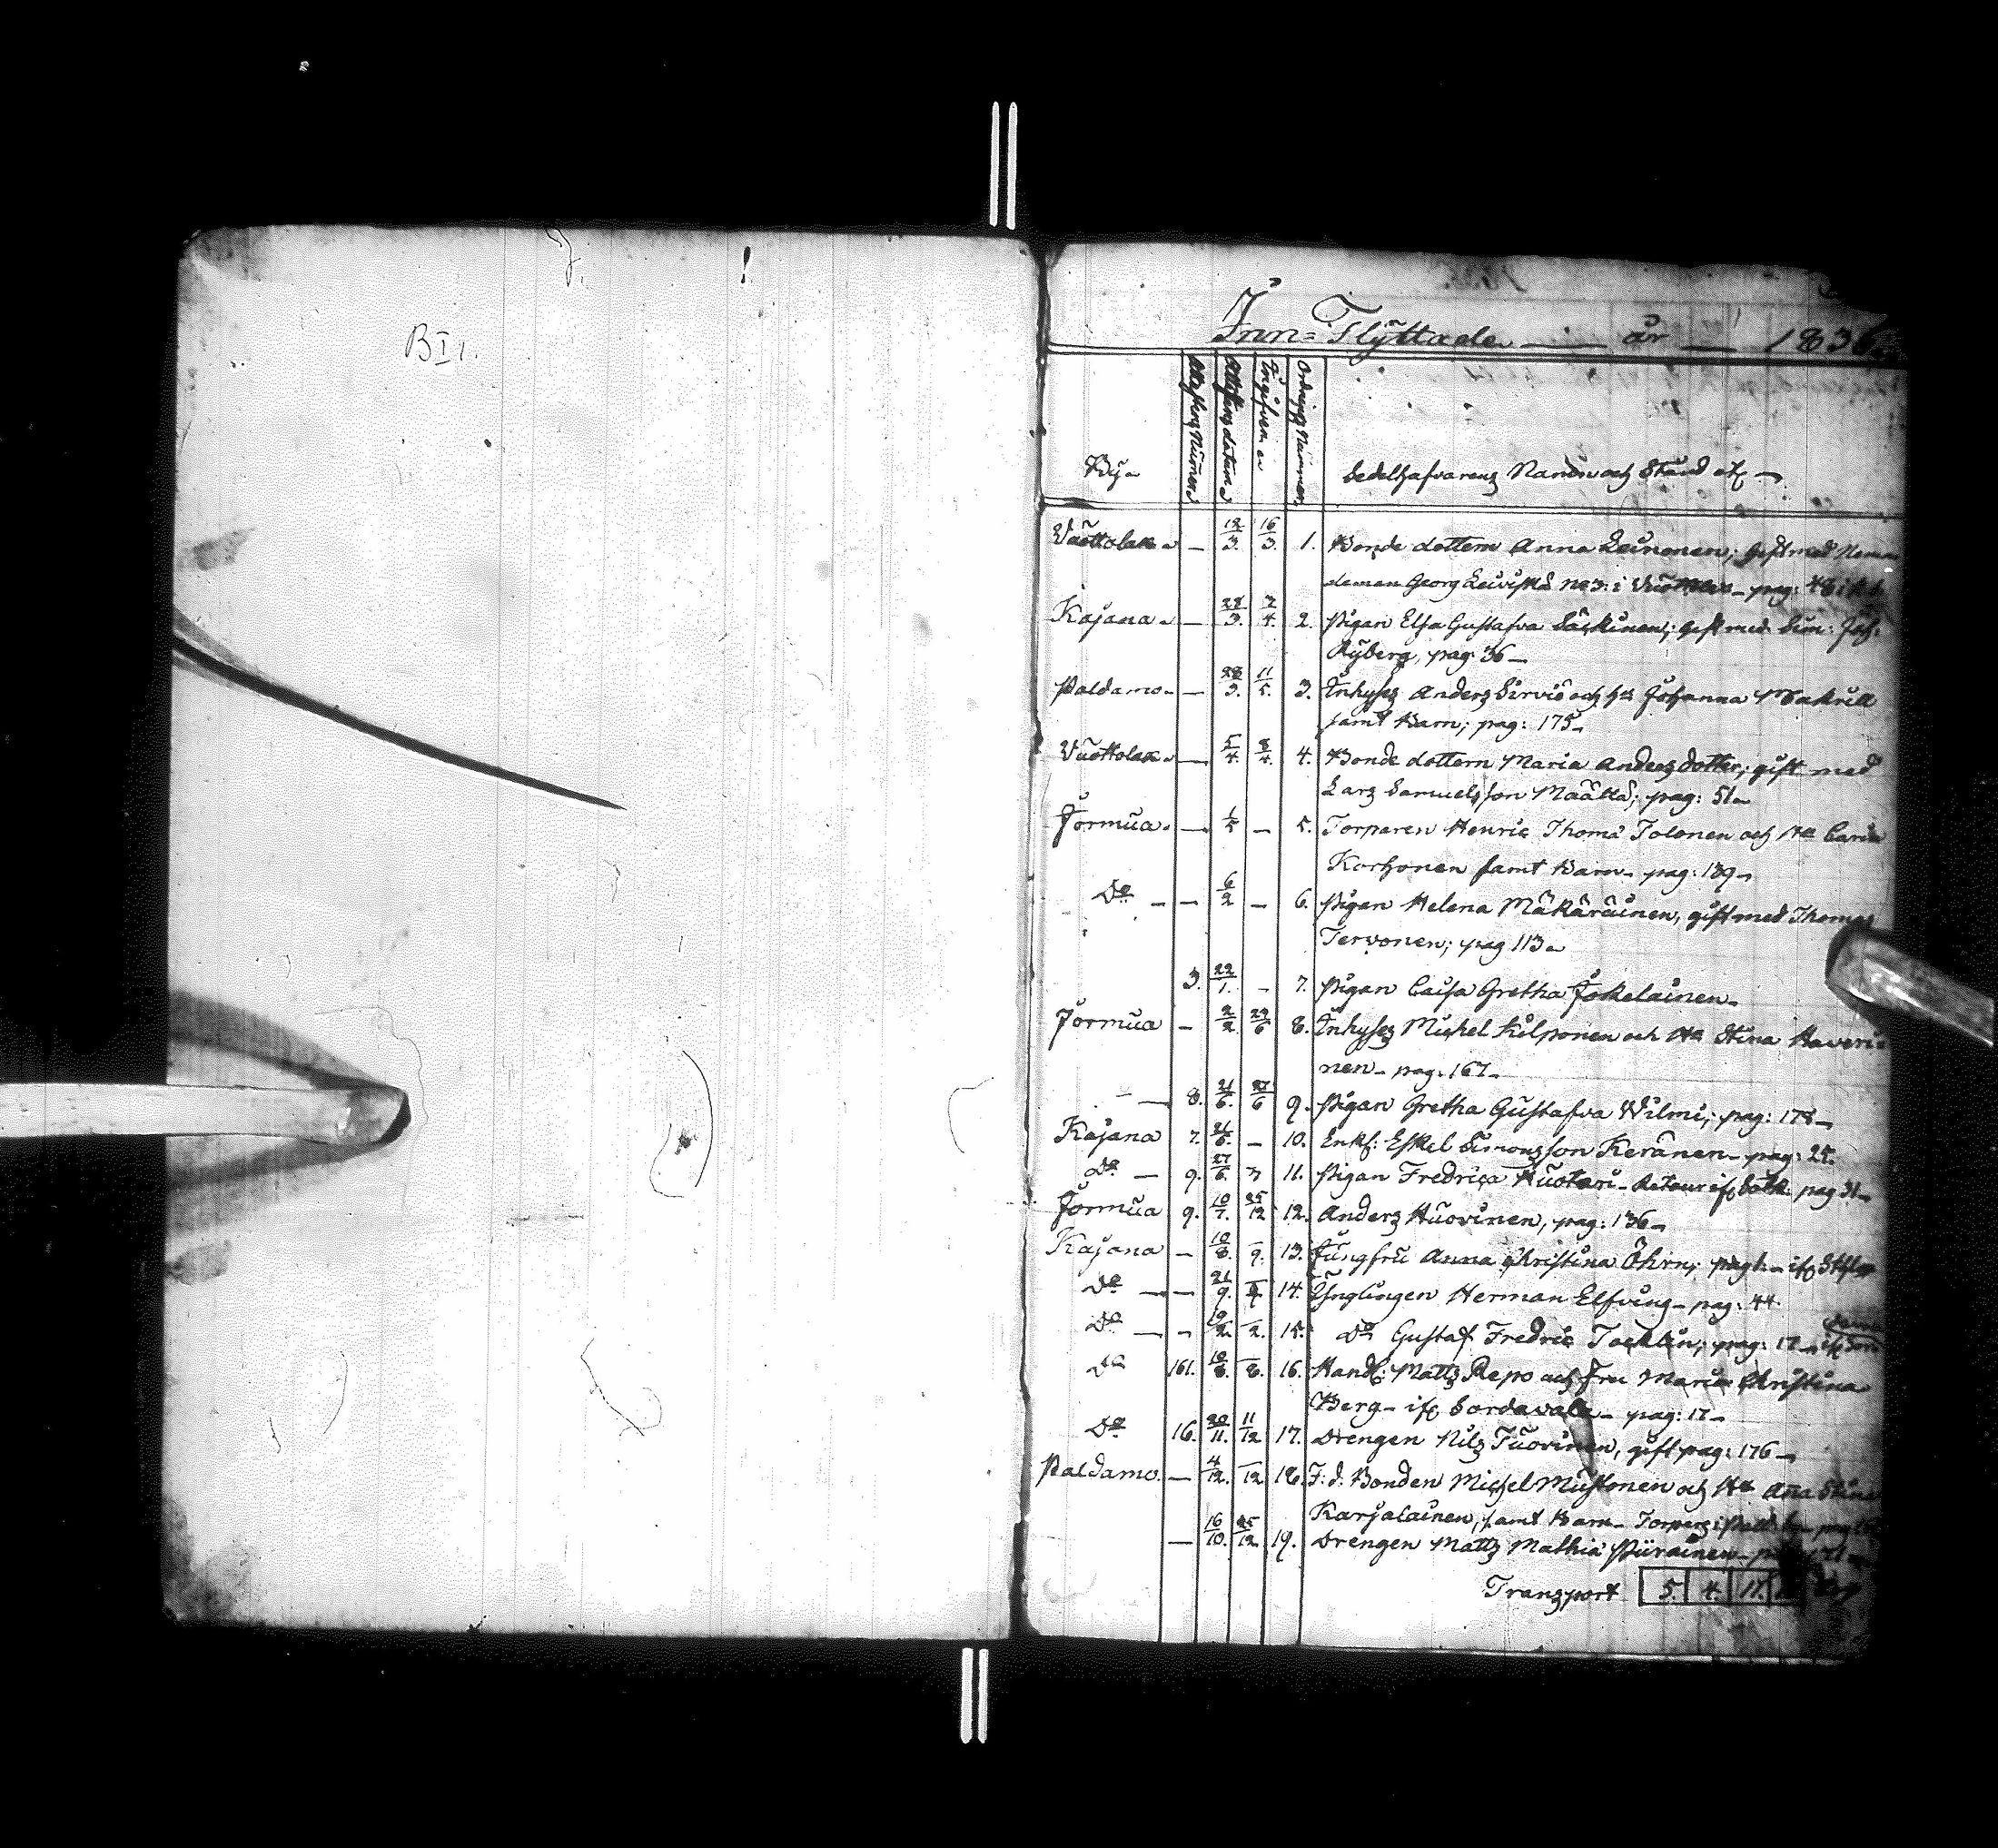 B I 1.
Inn-Flyttade — år — 1836
By
Attestens Numer
Attestens datum
Ingifven
Ordnings Nummer
Sedelhafvarens Namn och Stånd etc —
Vuottolax — 12/3. 16/3. 1. Bonde dottern Anna Leinonen; gift med
deman Georg Leiviskä No 3: i Vuottolax — pag: 46
Kajana — 28/3. 2/4. 2. Pigan Elsa Gustafva Säskinen; gift med Sim: Joh:
Ryberg, pag 36 —
Paldamo — 28/3. 11/5. 3. Inhyses Anders Sirviö och h:u Johanna
samt Barn; pag: 175 —
Vuottolax — 5/4. 8/4. 4. Bonde dottern Maria Anders dotter; gift med
Lars Samuelsson Määttä; pag: 51 —
Jormua — 1/5 — 5. Torparen Henric Thoma Tolonen och H:u Carin
Korhonen samt Barn — pag: 139 —
D:o — — 6/2 — 6. Pigan Helena Mäkäräinen, gift med Thomas
Tervonen; pag 113 —
3. 22/1. — 7. Pigan Caisa Gretha Jokelainen —
Jormua — 2/2. 29/6 8. Inhyses Michel Kilponen och H:u Stina Haveri-
nen — pag. 167 —
— 8. 21/6. 27/6 9. Pigan Gretha Gustafva Wilmi; pag: 178 —
Kajana 7. 21/6. — 10. Enkl: Eskel Simonsson Keränen — pag: 25.
D:o — 9. 27/6. 11. Pigan Fredrica Huotari — Retour if: pag 31 —
Jormua 9. 10/7. 25/12 12. Anders Huovinen, pag: 136 —
Kajana — 10/8. —/9. 13. Jungfru Anna Christina Öhrn;
D:o — — 21/9. 14. Ynglingen Herman Elfving — pag: 44.
D:o — — 19/2. —/2. 15. D:o Gustaf Fredric Tocklin; pag: 17 —
D:o 161. 10/8. —/8. 16. Handl: Matts Repo och Fru Maria Christina
Berg — if: Sordavala — pag: 17 —
D:o 16. 20/11. 11/12 17. Drengen Nils Tuovinen, gift pag: 176 —
Paldamo. — 4/12. —/12 18. F: d. Bonden Michel Mustonen och H:u Anna Stina
Karjalainen, samt Barn —
— 16/10. 25/12 19. Drengen Matts Mathiä Piirainen —
Transport 5. 4. 11.